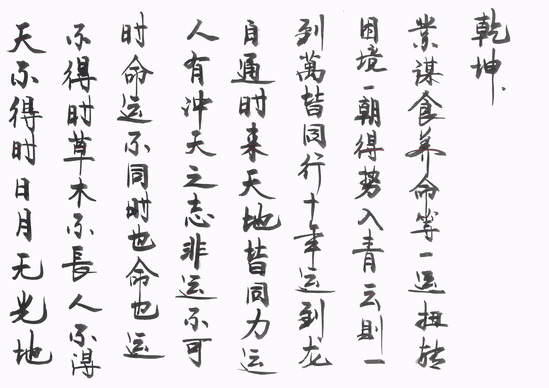 天不得时日月无光地
不得时草木不長人不得
时命运不同时也命也运
人有冲天之志非运不可
自通时来天地皆同力运
到萬皆同行十年运到龙
困境一朝得势入青云则一
業谋食养命等一运扭转
乾坤.